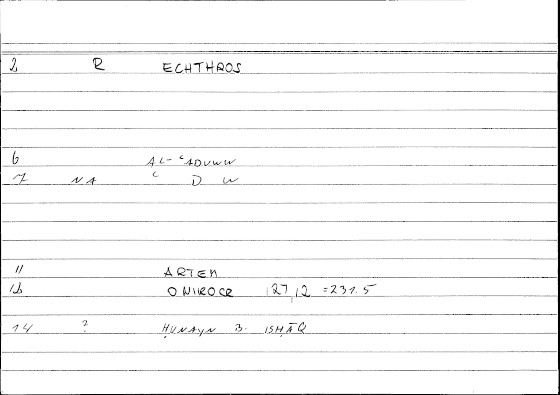 2 R ECHTHROS
6 AL-ʿADUWW
7 NA ʿ D W
11 ARTEM
12 ONIROCR 127,12 = 231.5
14 ? ḤUNAYN B. ISḤĀQ